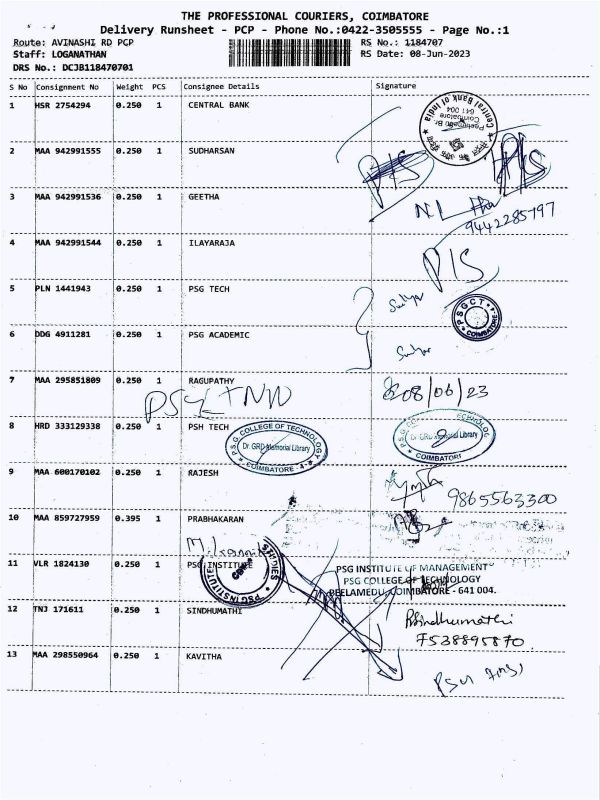 THE PROFESSIONAL COURIERS, COIMBATORE
Delivery Runsheet - PCP - Phone No.:0422-3505555 - Page No.:1
Route: AVINASHI RD PCP RS No.: 1184707
Staff: LOGANATHAN RS Date: 08-Jun-2023
DRS No.: DCJB118470701
S No Consignment No Weight PCS Consignee Details Signature
1 HSR 2754294 0.250 1 CENTRAL BANK
Central Bank of India
Coimbatore
641 004
2 MAA 942991555 0.250 1 SUDHARSAN
P/S P/S
3 MAA 942991536 0.250 1 GEETHA
9442285797
4 MAA 942991544 0.250 1 ILAYARAJA
P/S
5 PLN 1441943 0.250 1 PSG TECH
PSGCT
COIMBATORE
6 DDG 4911281 0.250 1 PSG ACADEMIC
7 MAA 295851809 0.250 1 RAGUPATHY
08/06/23
8 HRD 333129338 0.250 1 PSH TECH
P.S.G. COLLEGE OF TECHNOLOGY
Dr. GRD Memorial Library
COIMBATORE - 4
Dr. GRD Memorial Library
9 MAA 600170102 0.250 1 RAJESH
9865563300
10 MAA 859727959 0.395 1 PRABHAKARAN
11 VLR 1824130 0.250 1 PSG INSTITUTE
PSG INSTITUTE
PSG INSTITUTE OF MANAGEMENT
PSG COLLEGE OF TECHNOLOGY
PEELAMEDU, COIMBATORE - 641 004.
12 TNJ 171611 0.250 1 SINDHUMATHI
Sindhumathi
7538895870
13 MAA 298550964 0.250 1 KAVITHA